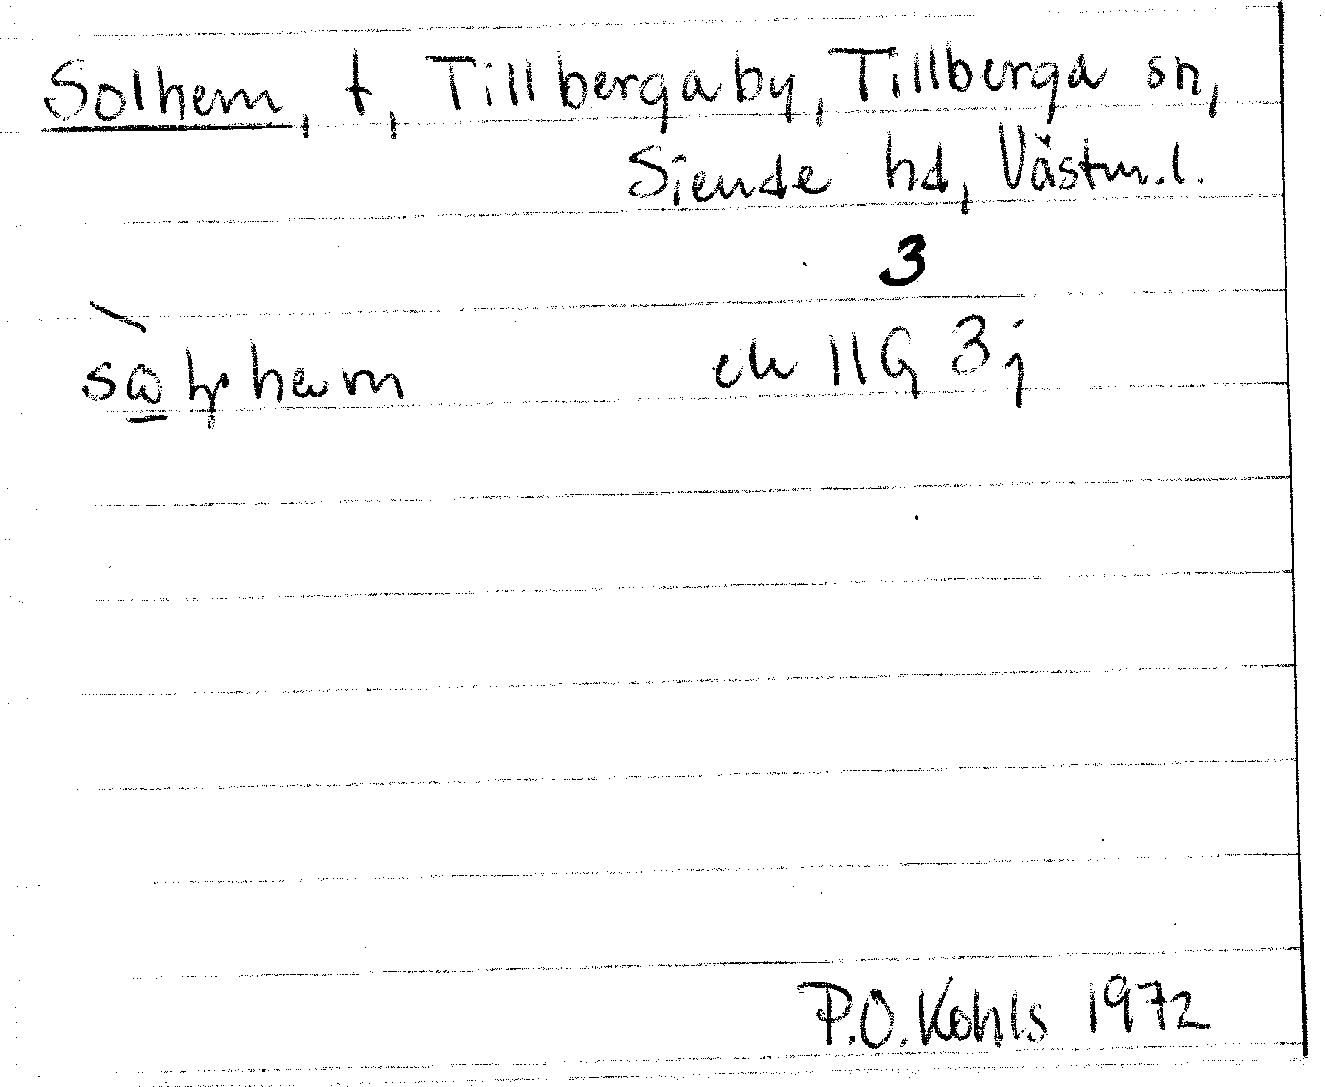 Solhem, t, Tillbergaby, Tillberga sn,
Siende hd, Västm.l.
3
ek 11G 3j
P.O. Kohls 1972